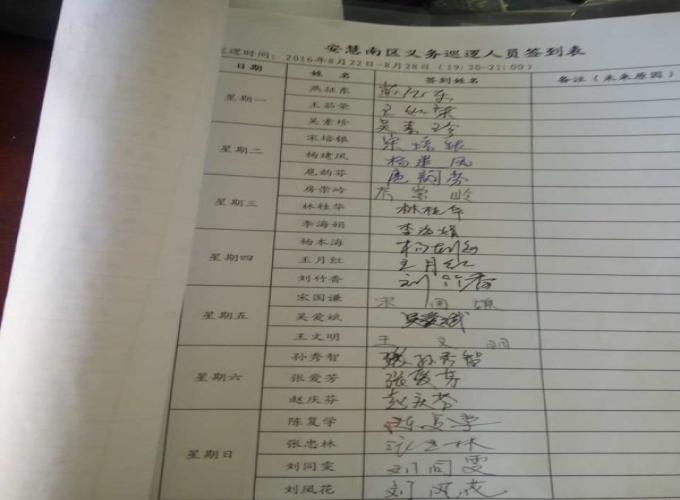 安慧南区义务巡逻人员签到表
巡逻时间：2016年8月22日-8月28日（19:30-21:00）
日期 姓名 签到姓名 备注（未来原因）
星期一
燕征东
王茹荣
吴素珍 吴素珍
星期二
宋培银 宋培银
杨建凤 杨建凤
扈韵芬 扈韵芬
星期三
房崇岭 房崇岭
林桂华 林桂华
李海娟 李海娟
星期四
杨本海
王月红 王月红
刘竹香 刘竹香
星期五
宋国谦 宋国谦
吴爱斌 吴爱斌
王文明 王文明
星期六
孙秀智 孙秀智
张爱芳 张爱芳
赵庆芬 赵庆芬
星期日
陈复学 陈复学
张忠林 张忠林
刘同雯 刘同雯
刘凤花 刘凤花